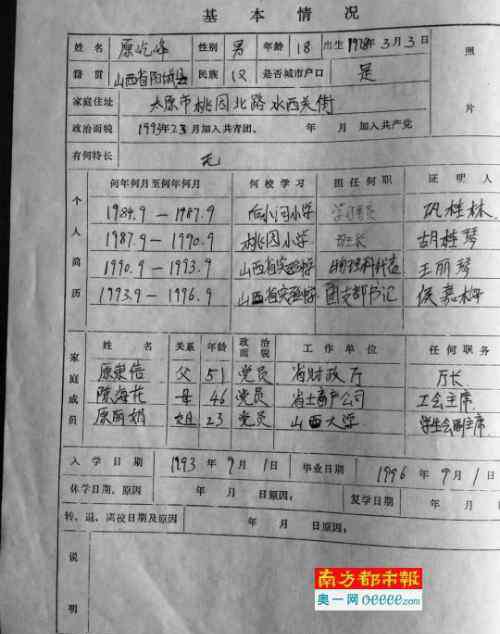 基本情况
姓名 原屹峰 性别 男 年龄 18 出生 1978年3月3日 照
籍贯 山西省阳城县 民族 汉 是否城市户口 是
家庭住址 太原市桃园北路水西关街
片
政治面貌 1993年23月加入共青团. 年 月 加入共产党
有何特长 无
个人简历
何年何月至何年何月 何校学习 担任何职 证明人
1984.9 — 1987.9 后小河小学 学习委员 巩桂林
1987.9 — 1990.9 桃园小学 班长 胡桂琴
1990.9 — 1993.9 山西省实验中学 物理科代表 王丽琴
1993.9 — 1996.9 山西省实验中学 团支部书记 侯嘉
家庭成员
姓名 关系 年龄 政治面貌 工作单位 任何职务
原 父 51 党员 省财政厅 厅长
陈海花 母 46 党员 省土畜产公司 工会主席
原丽娟 姐 23 党员 山西大学 学生会副主席
入学日期 1993年9月1日 毕业日期 1996年9月1
休学日期、原因 年 月 日原因: 复学日期 年 月
转、退、离校日期及原因 年 月 日原因:
说明
南方都市報
奥一网 oeeee.com